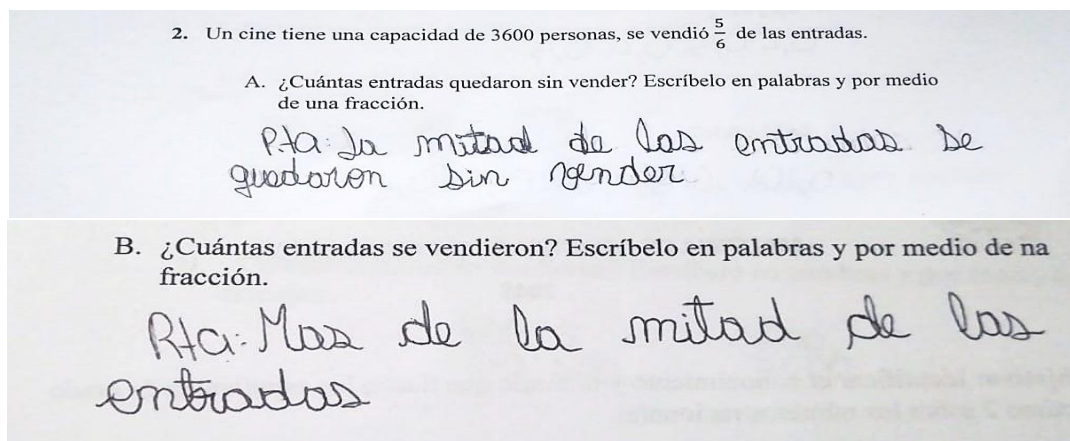 2. Un cine tiene una capacidad de 3600 personas, se vendió 5/6 de las entradas.
A. ¿Cuántas entradas quedaron sin vender? Escríbelo en palabras y por medio
de una fracción.
Rta: La mitad de las entradas se
quedaron sin vender.
B. ¿Cuántas entradas se vendieron? Escríbelo en palabras y por medio de na
fracción.
Rta: Mas de la mitad de las
entradas